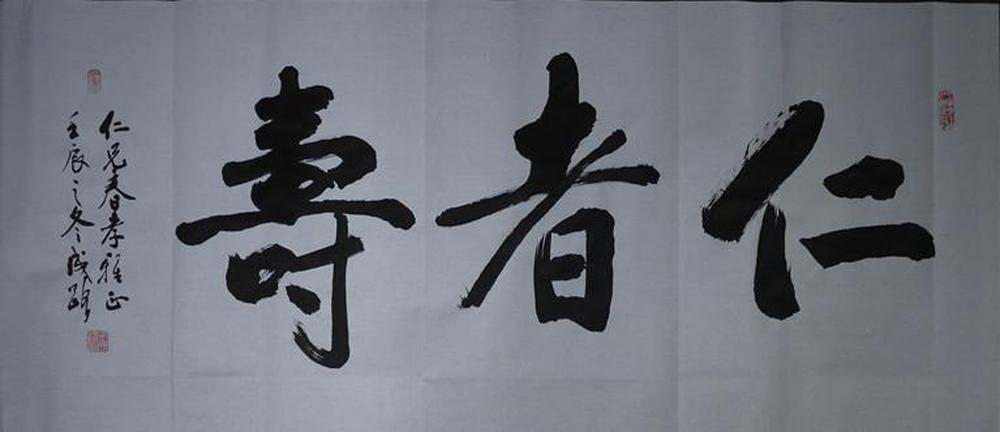 仁者壽
仁兄春孝雅正
壬辰之冬成路